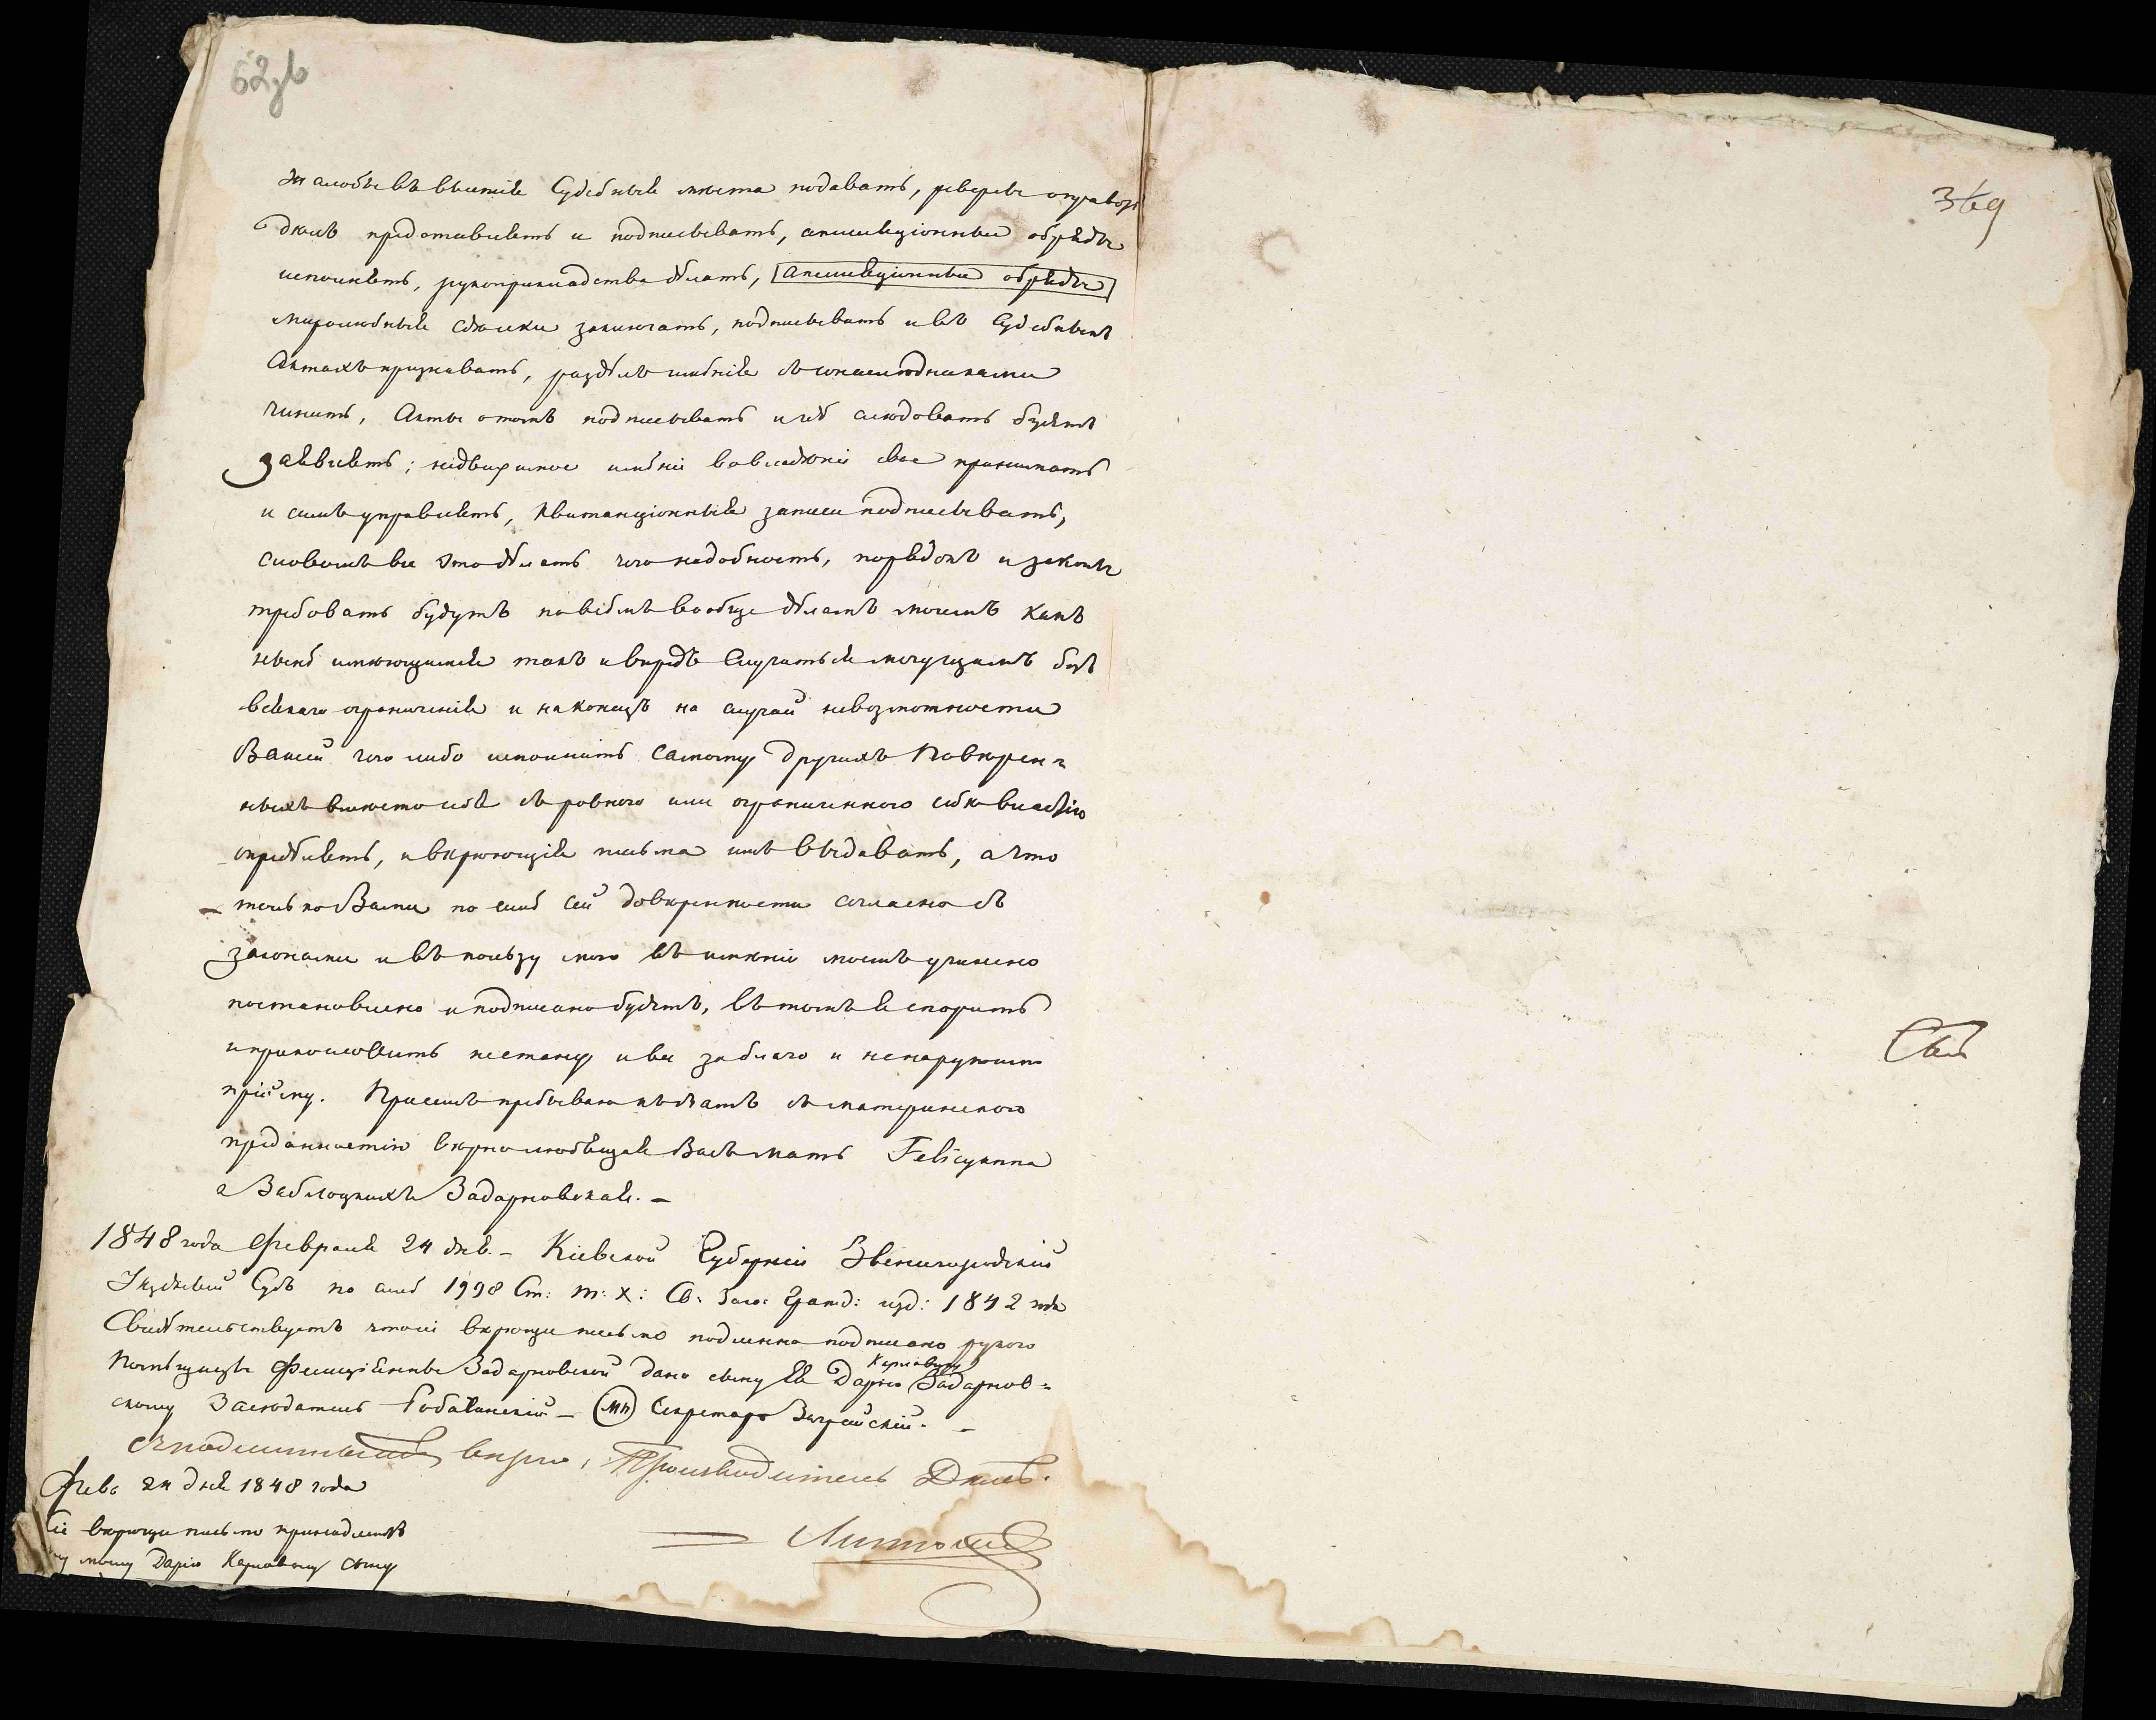 62 зв
жалобы въ высшія Судебныя мѣста подавать, реверсъ
дѣлъ представлять и подписывать, апелляціонные обряды
исполнять, рукоприкладства дѣлать, апелляціонные обряды
миролюбныя сдѣлки заключать, подписывать и въ Судебныхъ
Актахъ признавать, раздѣлъ имѣнія съ сонаслѣдниками
чинить, Акты о томъ подписывать и гдѣ слѣдовать будетъ
заявлять; недвижимое имѣніе во владѣніе свое принимать
и симъ управлять, квитанціонныя записи подписывать,
словомъ все то дѣлать чего надобность, порядокъ и законы
требовать будутъ по всѣмъ вообще дѣламъ моимъ какъ
нынѣ имѣющимся такъ и впредь случиться могущимъ безъ
всякаго ограниченія и наконецъ на случай невозможности
Вашей чего либо исполнить самому другихъ Повѣрен-
ныхъ вмѣсто себя съ ровною или ограниченною себѣ властію
опредѣлять, и вѣрющія письма имъ выдавать, а что
только Вами по силѣ сей довѣренности согласно съ
законами и въ пользу мою въ имѣніи моемъ учинено
постановлено и подписано будетъ, въ томъ я спорить
и прекословить не стану и все за благо и ненарушимо
прійму. При семъ пребываю къ Вамъ съ материнскою
преданностію вѣрно любящая Васъ мать Felicyanna
з Заблоцкихъ Задарновская. —
1848 года Февраля 24 дня. — Кіевской Губерніи Звенигородскій
Уѣздный Судъ по силѣ 1998 Ст: т: X: Св: Зако: Гражд: изд: 1842 года
Свидѣтельствуетъ что сіе вѣрющее письмо подлинно подписано рукою
Помѣщицы Фелиціянны Задарновской дано сыну Ея Дарію Карловичу Задарнов-
скому Засѣдатель — МП Секретарь
Съ подлиннымъ вѣрно, Производитель Дѣлъ.
Февр 24 дня 1848 года
Сіе вѣрющее письмо принадлежитъ
моему Дарію Карловичу сыну
369